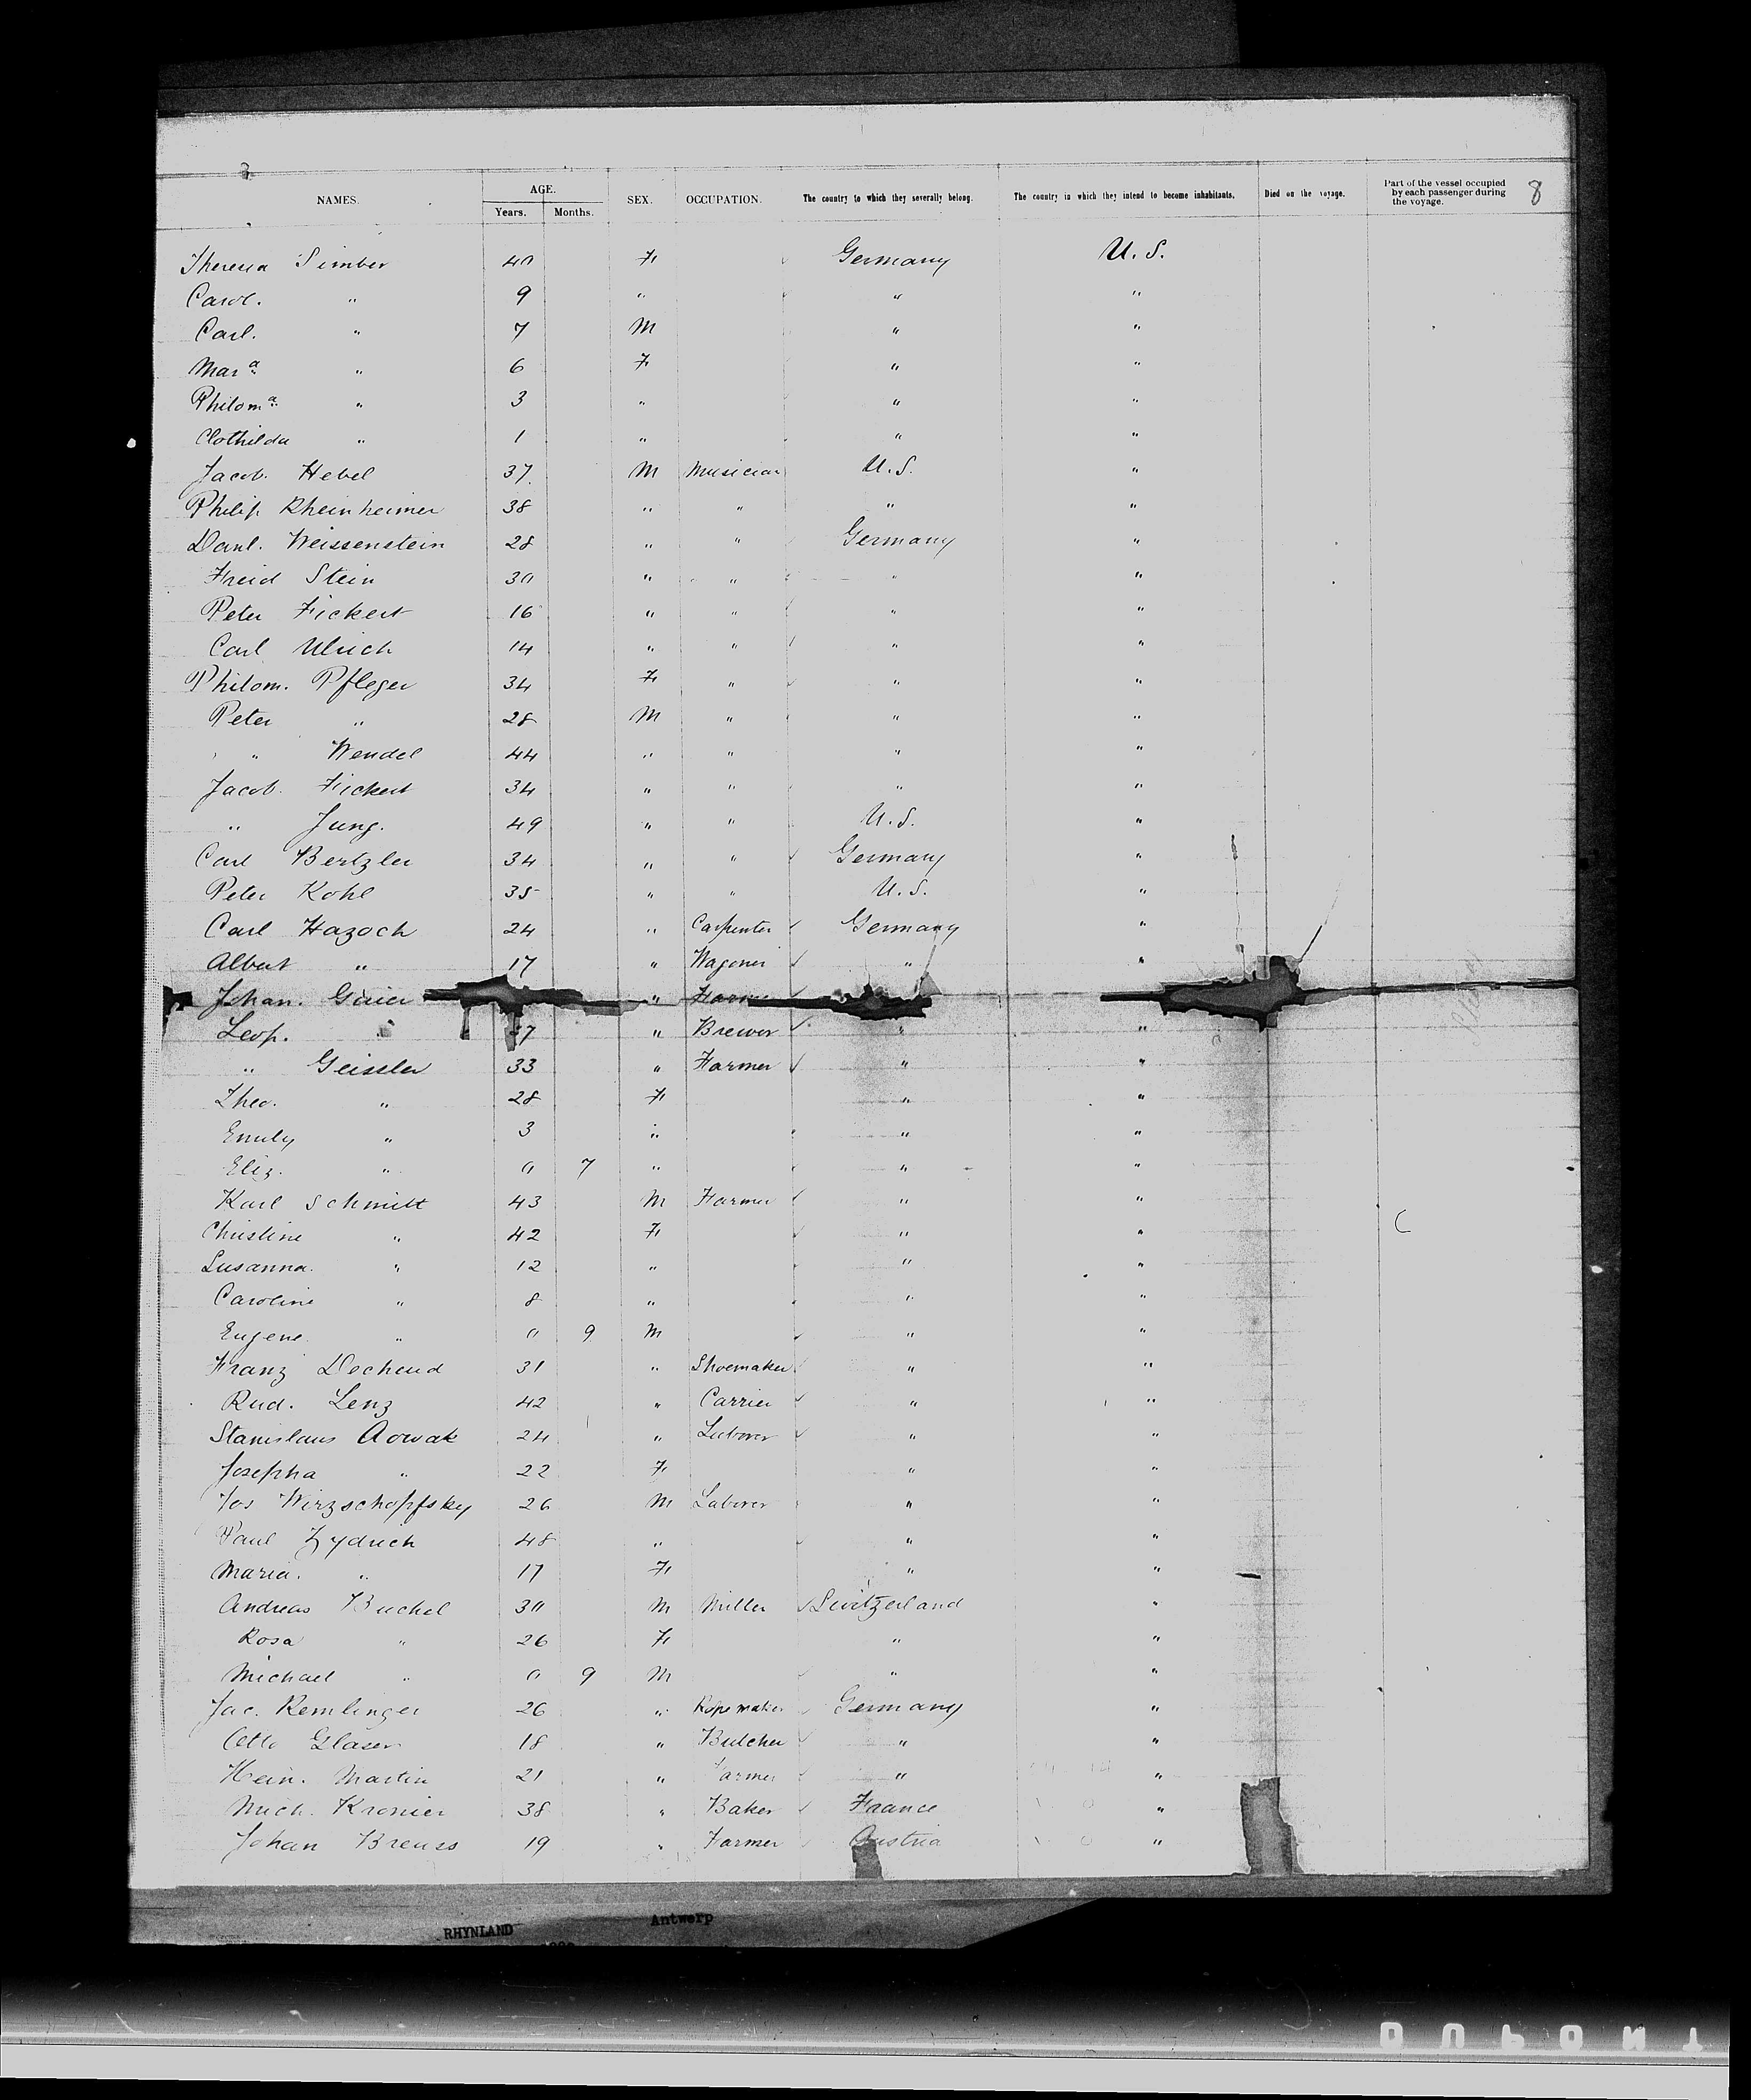 8
NAMES. AGE. Years. Months. SEX. OCCUPATION. The country to which they severally belong. The country in which they intend to become inhabitants. Died on the voyage. Part of the vessel occupied by each passenger during the voyage.
Theresia Simber 40 F Germany U.S.
Carol. " 9 " " "
Carl. " 7 M " "
Mara " 6 F " "
Philoma " 3 " " "
Clothilda " 1 " " "
Jacob. Hebel 37 M Musician U.S. "
Philip Rheinheimer 38 " " " "
Danl. Weissenstein 28 " " Germany "
Freid Stein 30 " " " "
Peter Fickert 16 " " " "
Carl Ulrich 14 " " " "
Philom. Pfleger 34 F " " "
Peter " 28 M " " "
" Wendel 44 " " " "
Jacob. Fickert 34 " " " "
" Jung. 49 " " U.S. "
Carl Bertzler 34 " " Germany "
Peter Kohl 35 " " U.S. "
Carl Hazoch 24 " Carpenter Germany "
Albert " 17 " Wagoner " "
Johan. Gaier "
Leop. " " Brewer " "
" Geissler 33 " Farmer " "
Theo. " 28 F " "
Emily " 3 " " "
Eliz. " 0 7 " " "
Karl Schmitt 43 M Farmer " "
Christine " 42 F " "
Susanna. " 12 " " "
Caroline " 8 " " "
Eugene " 0 9 M " "
Franz Dechend 31 " Shoemaker " "
Rud. Lenz 42 " Carrier " "
Stanislaus Aowak 24 " Laborer " "
Josepha " 22 F " "
Jos Wirzschopfsky 26 M Laborer " "
Paul Zydrich 48 " " "
Maria. " 17 F " "
Andreas Buchel 30 M Miller Switzerland "
Rosa " 26 F " "
Michael " 0 9 M " "
Jac. Remlinger 26 " Ropmaker Germany "
Otto Glaser 18 " Butcher " "
Hein. Martin 21 " Farmer " "
Mich. Kronier 38 " Baker France "
Johan Breuss 19 " Farmer Austria "
RHYNLAND Antwerp
DUPONT